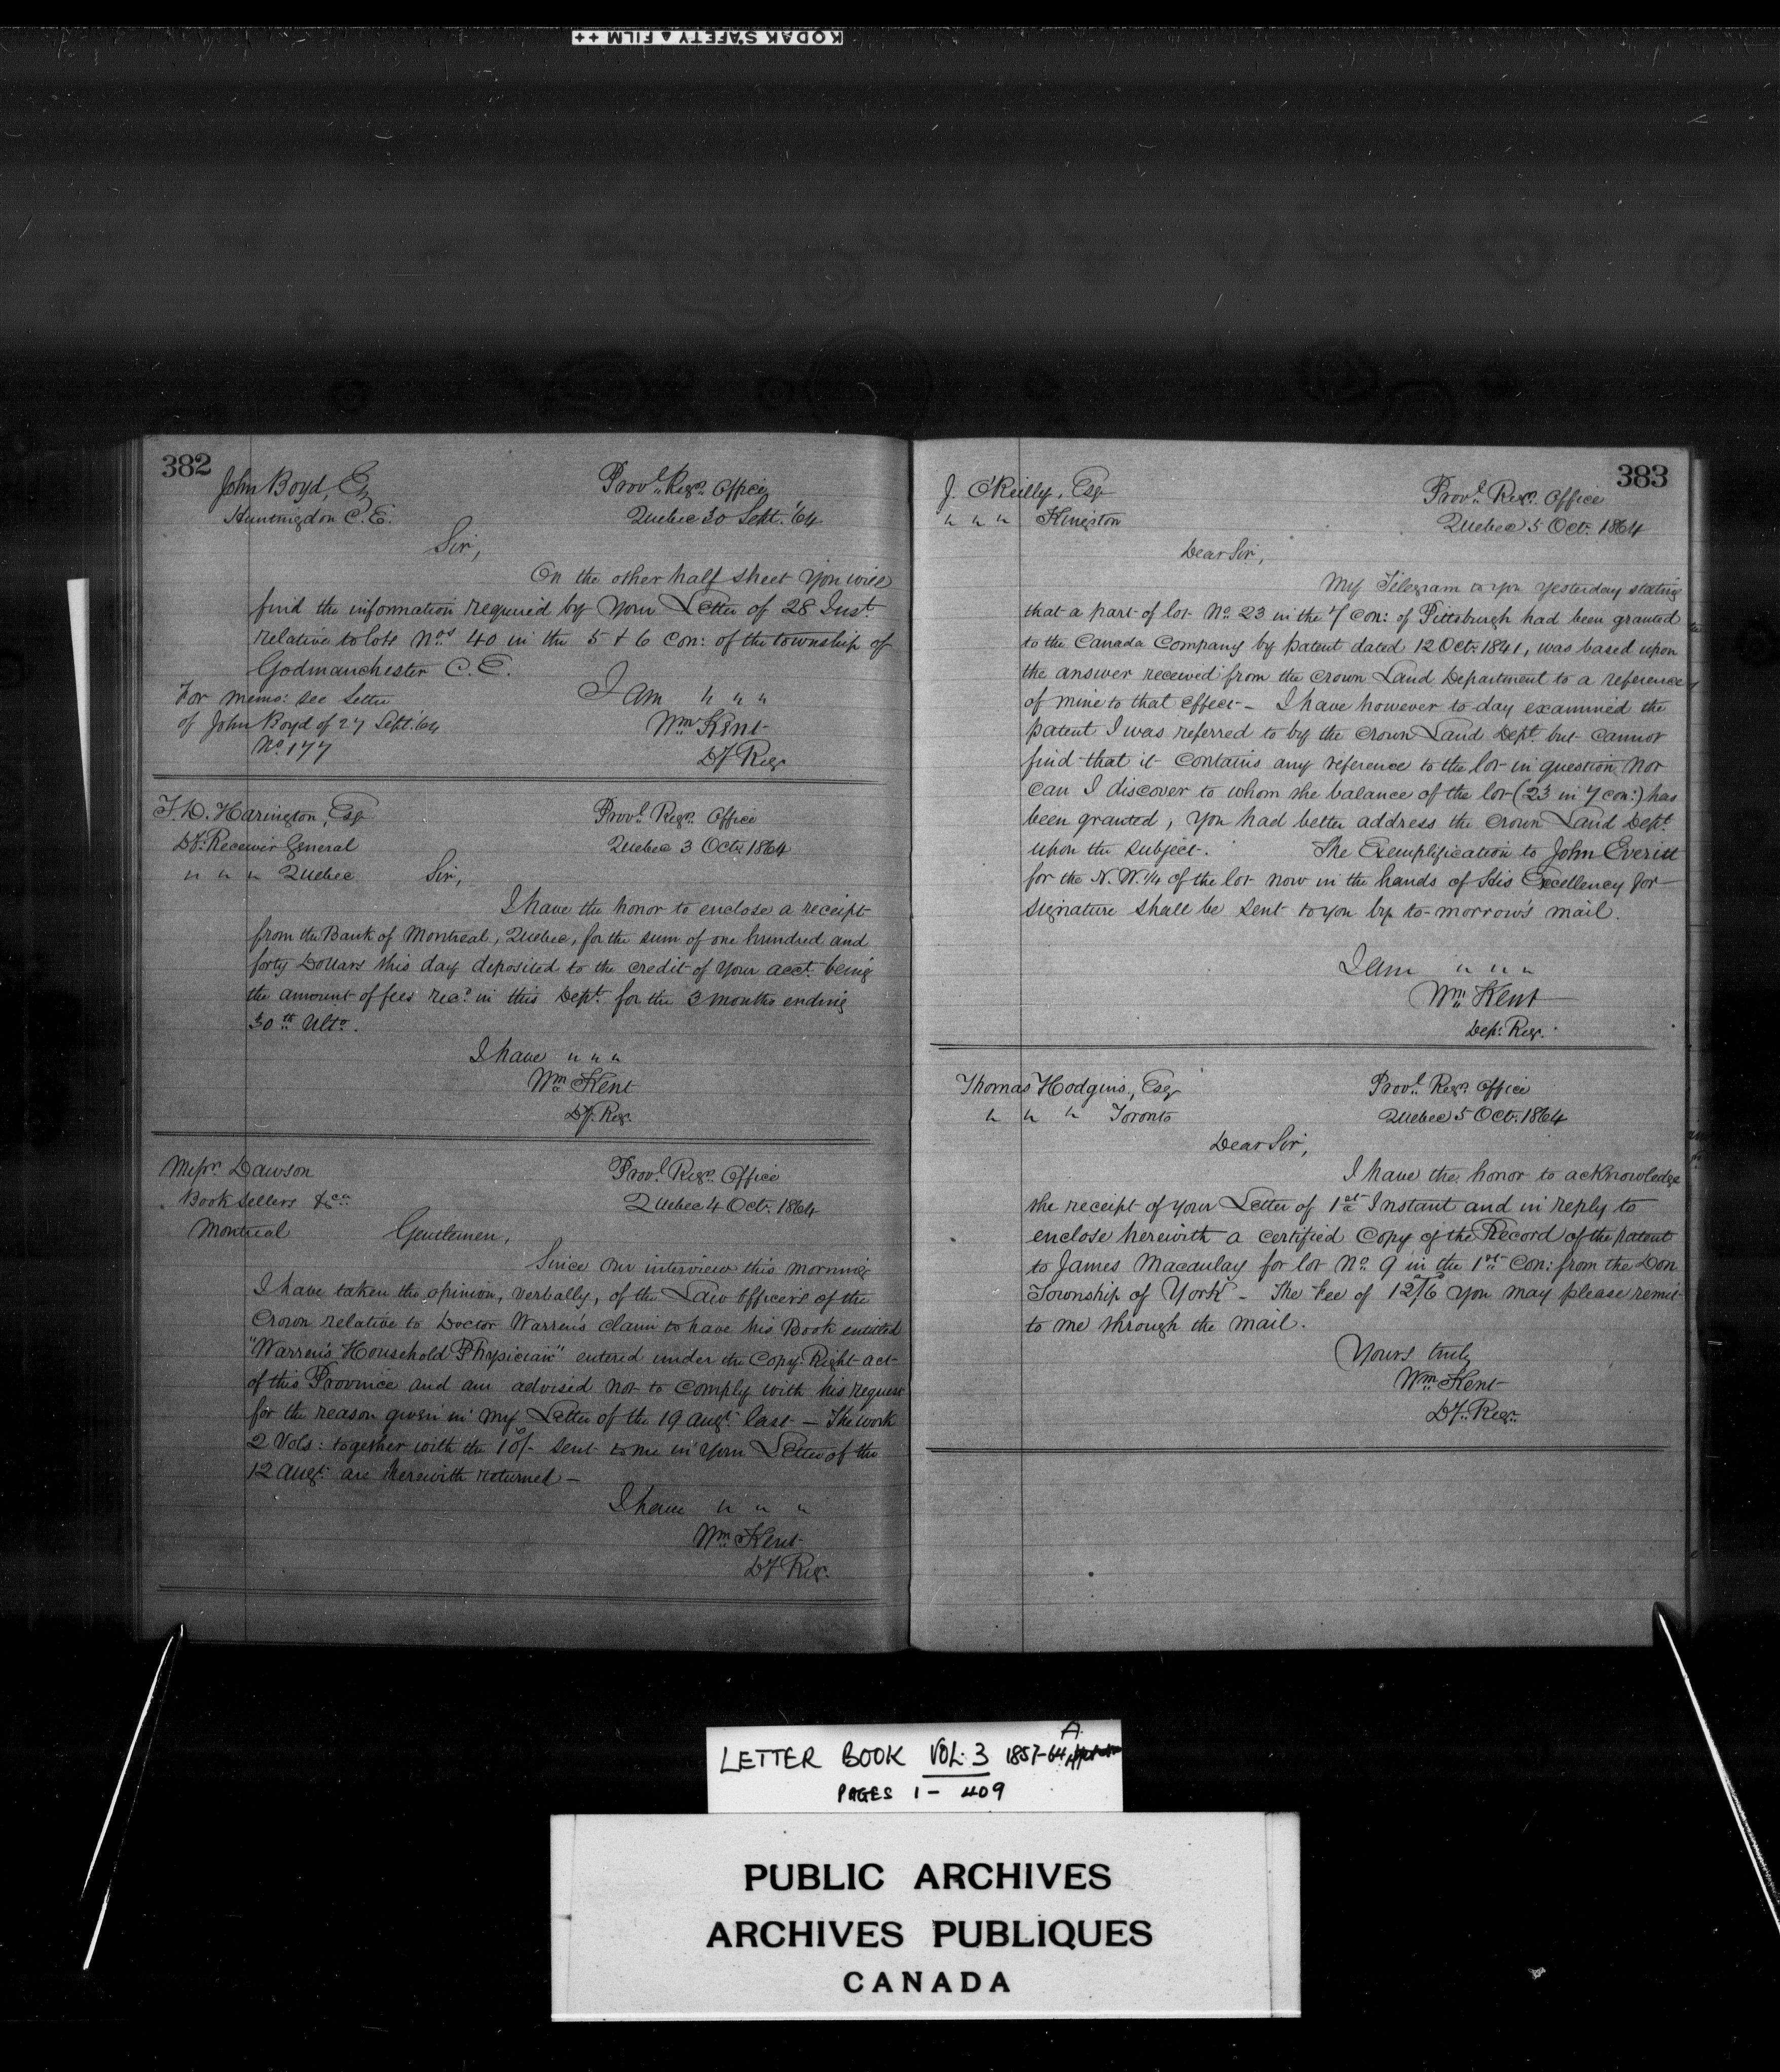 KODAK SAFETY FILM ++
382
John Boyd, Esq
Huntingdon C.E.
Provl. Regr. Office
Quebec 30 Sept. '64
Sir,
On the other half sheet you will
find the information required by your Letter of 28 Inst.
relative to lots Nos. 40 in the 5 & 6 Con: of the township of
Godmanchester C.E.
I am " " "
Wm. Kent
Dy Regr.
For memo: see Letter
of John Boyd of 27 Sept. '64
No. 177
T.D. Harington, Esq
Dy. Receiver General
" " " Quebec
Provl. Regr. Office
Quebec 3 Oct. 1864
Sir,
I have the honor to enclose a receipt
from the Bank of Montreal, Quebec, for the sum of one hundred and
forty Dollars this day deposited to the credit of your acct. being
the amount of fees recd. in this Dept. for the 3 months ending
30th. Ulto.
I have " " "
Wm. Kent
Dy. Reg.
Messrs. Dawson
Book Sellers &ca.
Montreal
Provl. Regr. Office
Quebec 4 Oct. 1864
Gentlemen,
Since our interview this morning
I have taken the opinion, verbally, of the Law Officers of the
Crown relative to Doctor Warren's claim to have his Book entitled
"Warren's Household Physician" entered under the Copy Right act
of this Province and am advised not to comply with his request
for the reason given in my Letter of the 19 Augt. last — The work
2 Vols: together with the 10/- sent to me in your Letter of the
12 Augt. are herewith returned —
I have " " "
Wm. Kent
Dy Reg.
383
J. O'Reilly, Esq
" " " Kingston
Provl. Regr. Office
Quebec 5 Oct. 1864
Dear Sir,
My Telegram to you yesterday stating
that a part of lot No. 23 in the 7 Con: of Pittsburgh had been granted
to the Canada Company by patent dated 12 Oct. 1841, was based upon
the answer received from the Crown Land Department to a reference
of mine to that effect — I have however to-day examined the
patent I was referred to by the Crown Land Dept. but cannot
find that it contains any reference to the lot in question nor
can I discover to whom the balance of the lot (23 in 7 con:) has
been granted, you had better address the Crown Land Dept.
upon the subject. The Exemplification to John Everitt
for the N.W. 1/4 of the lot now in the hands of His Excellency for
signature shall be sent to you by to-morrow's mail.
I am " " "
Wm. Kent
Dep. Reg.
Thomas Hodgins, Esq
" " " Toronto
Provl. Regr. Office
Quebec 5 Oct. 1864
Dear Sir,
I have the honor to acknowledge
the receipt of your Letter of 1st. Instant and in reply to
enclose herewith a certified Copy of the Record of the patent
to James Macaulay for lot No. 9 in the 1st. Con: from the Don
Township of York — The Fee of 12/6 you may please remit
to me through the mail.
Yours truly
Wm. Kent
Dy. Regr.
LETTER BOOK VOL. 3 1857-64 A
PAGES 1 - 409
PUBLIC ARCHIVES
ARCHIVES PUBLIQUES
CANADA